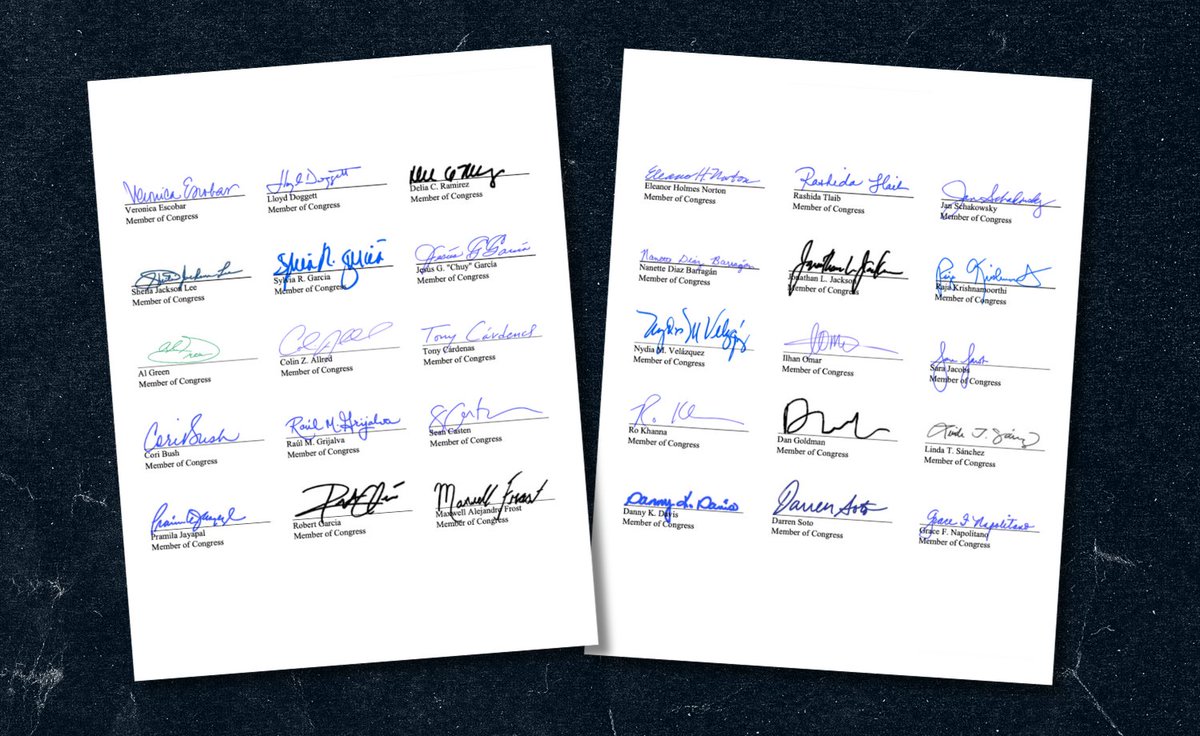 Veronica Escobar Lloyd Doggett
Veronica Escobar Lloyd Doggett Delia C. Ramirez
Member of Congress Member of Congress Member of Congress
Sylvia R. Garcia Jesús G García
Sheila Jackson Lee Sylvia R. Garcia Jesús G. "Chuy" García
Member of Congress Member of Congress Member of Congress
Tony Cárdenas
Al Green Colin Z. Allred Tony Cárdenas
Member of Congress Member of Congress Member of Congress
Cori Bush Raúl M Grijalva
Cori Bush Raúl M. Grijalva Sean Casten
Member of Congress Member of Congress Member of Congress
Maxwell Frost
Pramila Jayapal Robert Garcia Maxwell Alejandro Frost
Member of Congress Member of Congress Member of Congress
Eleanor H Norton Rashida Tlaib Jan Schakowsky
Eleanor Holmes Norton Rashida Tlaib Jan Schakowsky
Member of Congress Member of Congress Member of Congress
Nanette Díaz Barragán Jonathan L. Jackson Raja Krishnamoorthi
Nanette Diaz Barragán Jonathan L. Jackson Raja Krishnamoorthi
Member of Congress Member of Congress Member of Congress
Nydia M Velázquez
Nydia M. Velázquez Ilhan Omar Sara Jacobs
Member of Congress Member of Congress Member of Congress
Linda T. Sánchez
Ro Khanna Dan Goldman Linda T. Sánchez
Member of Congress Member of Congress Member of Congress
Danny K. Davis Darren Soto Grace F. Napolitano
Danny K. Davis Darren Soto Grace F. Napolitano
Member of Congress Member of Congress Member of Congress